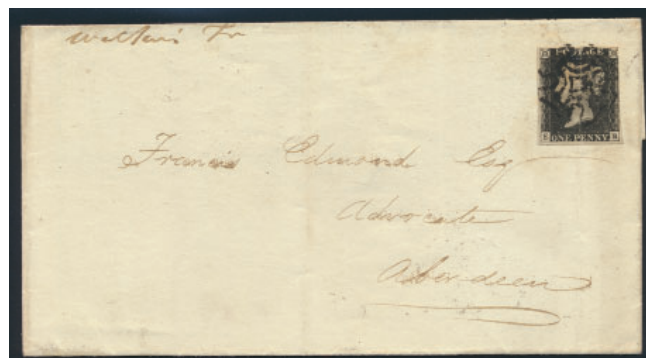 POSTAGE
ONE PENNY
Francis Edmond Esq
Advocate
Aberdeen